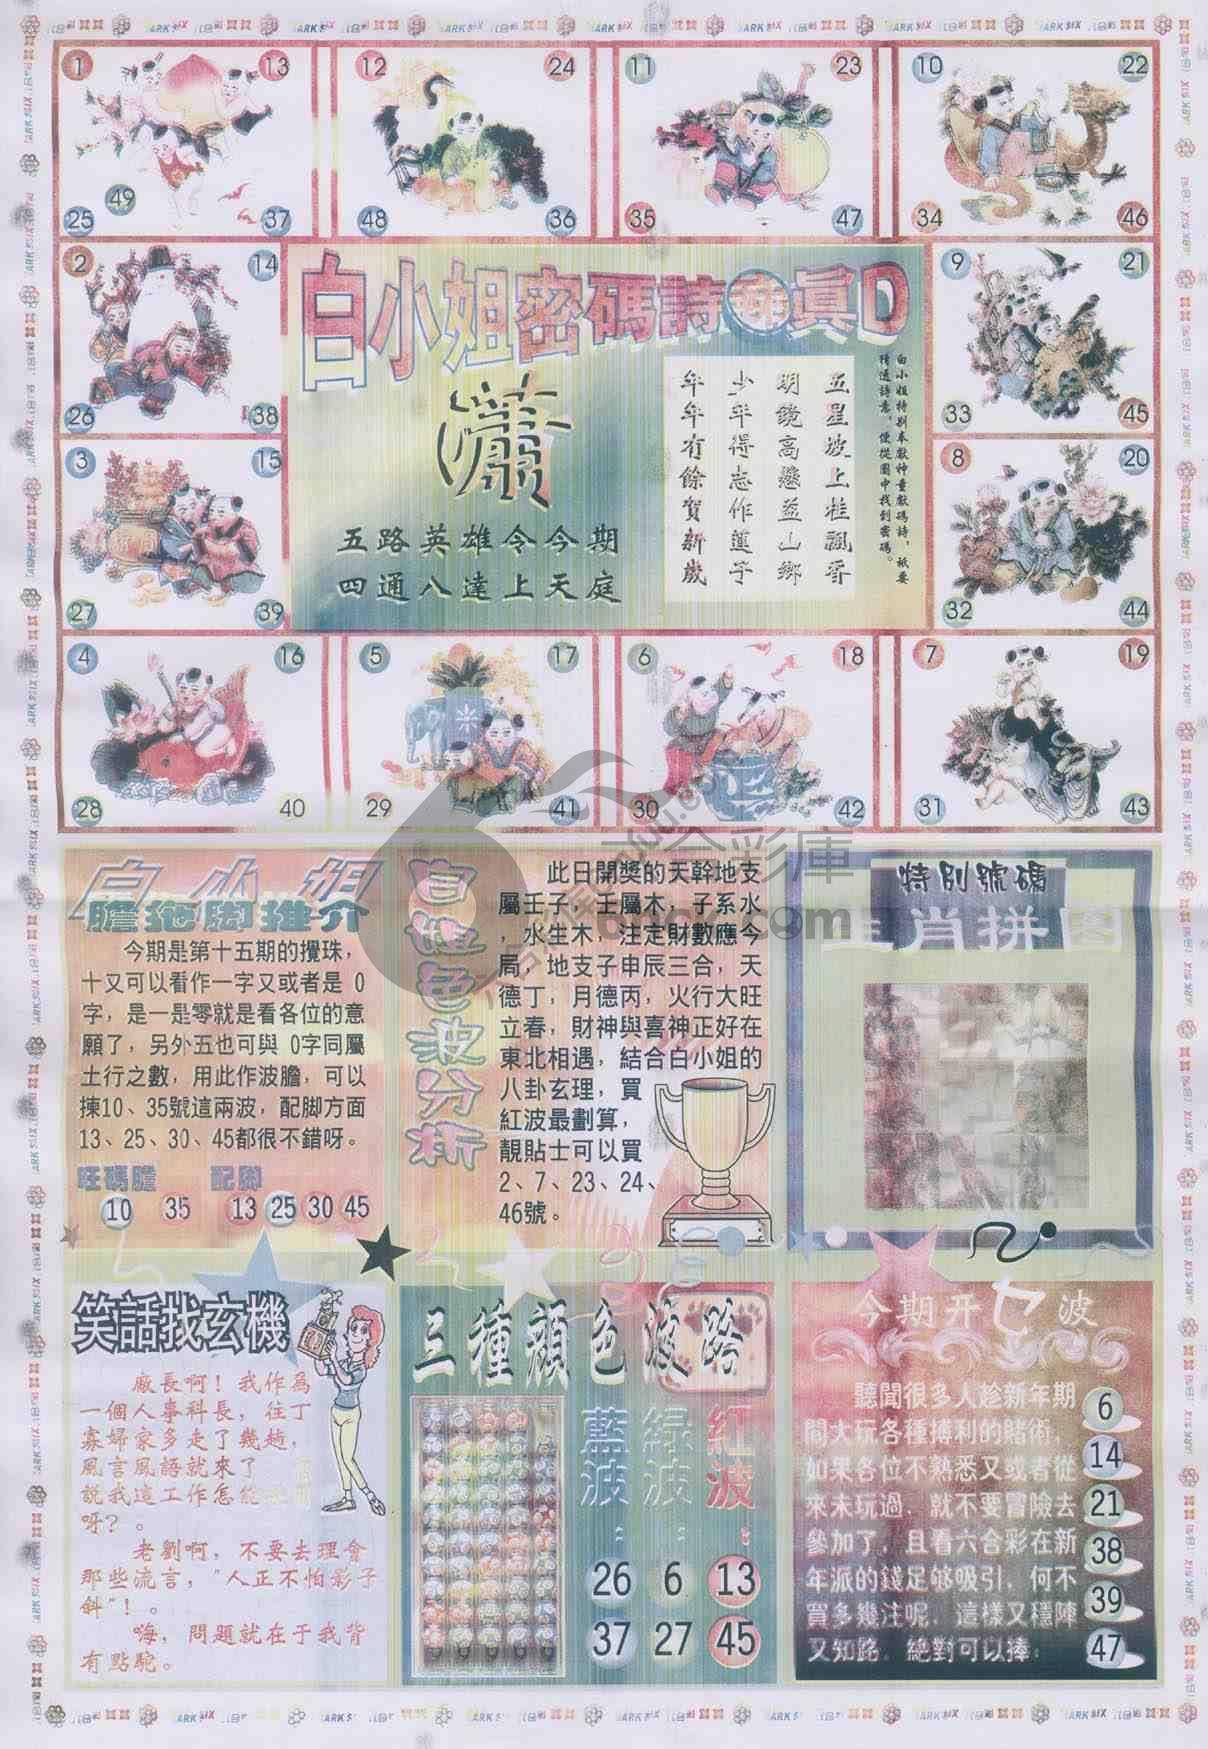 1 13 12 24 11 23 10 22
49
25 37 48 36 35 47 34 46
2 14
26 38
3 15
27 39
9 21
33 45
8 20
32 44
白小姐密碼詩 眞D
五路英雄令今期
四通八達上天庭
五星坡上桂飄香
明鏡高懸益山鄉
少年得志作蓮子
年年有餘賀新歲
白小姐特別奉獻神童獻碼詩，祇要
精通詩意，便從圖中找到密碼。
4 16 5 17 6 18 7 19
28 40 29 41 30 42 31 43
白小姐
膽拖脚推介
今期是第十五期的攪珠，
十又可以看作一字又或者是 0
字，是一是零就是看各位的意
願了，另外五也可與 0字同屬
土行之數，用此作波膽，可以
揀10、35號這兩波，配脚方面
13、25、30、45都很不錯呀。
旺碼膽 配脚
10 35 13 25 30 45
色波分析
此日開獎的天幹地支
屬壬子，壬屬木，子系水
，水生木，注定財數應今
局，地支子申辰三合，天
德丁，月德丙，火行大旺
立春，財神與喜神正好在
東北相遇，結合白小姐的
八卦玄理，買
紅波最劃算，
靚貼士可以買
2、7、23、24、
46號。
特別號碼
生肖拼图
笑話找玄機
廠長啊！我作為
一個人事科長，往丁
寡婦家多走了幾趟，
風言風語就來了
說我這工作怎能
呀？。
老劉啊，不要去理會
那些流言，"人正不怕影子
斜"！。
嗨，問題就在于我背
有點駝。
三種顏色波路
藍波： 綠波： 紅波：
26 6 13
37 27 45
今期开 波
聽聞很多人趁新年期
間大玩各種搏利的賭術，
如果各位不熟悉又或者從
來未玩過，就不要冒險去
參加了，且看六合彩在新
年派的錢足够吸引，何不
買多幾注呢，這樣又穩陣
又知路，絕對可以捧：
6
14
21
38
39
47